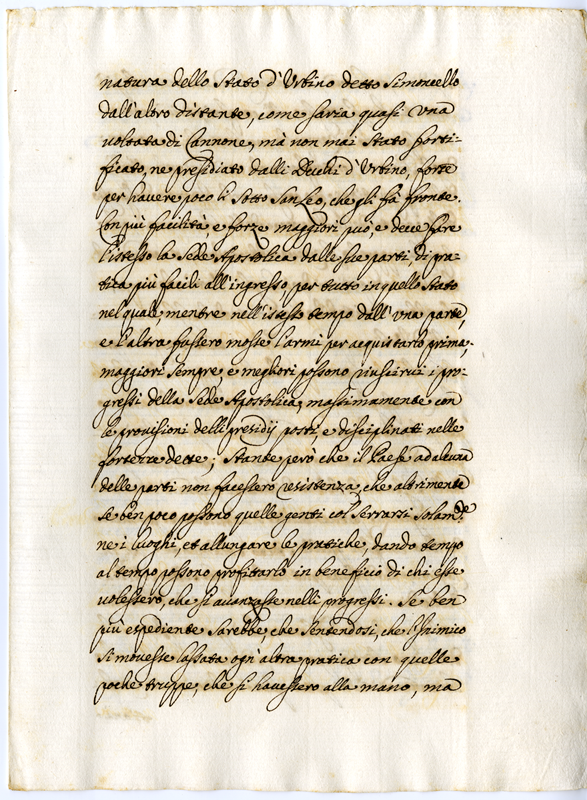 natura dello Stato d'Urbino detto Simoncello
dall'altro distante, come saria quasi una
voltata di Cannone, mà non mai stato forti-
ficato, ne presidiato dalli Duchi d'Urbino, forte
per havere poco li sotto San Leo, che gli fà fronte.
Con più facilità, e forze maggiori può, e deve fare
l'istesso la Sede Apostolica dalle sue parti di pra-
tica più facili all'ingresso per tutto in quello Stato
nel quale, mentre nell'istesso tempo dall'una parte,
e l'altra fussero mosse l'armi per acquistarlo prima,
maggiori sempre e megliori possono riuscirvi i pro-
gressi della Sede Apostolica, massimamente con
le provisioni delli presidij posti, e disciplinati nelle
fortezze dette; Stante però che il Paese ad alcuna
delle parti non facessero resistenza, che altrimente
se ben poco possono quelle genti col serrarsi
ne i luoghi, et allungare le pratiche, dando tempo
al tempo possono profittarlo in beneficio di chi esse
volessero, che si avanzasse nelli progressi. Se ben
più espediente sarebbe, che sentendosi, che l'Inimico
si movesse lassata ogn'altra pratica con quelle
poche truppe, che si havessero alla mano, mà